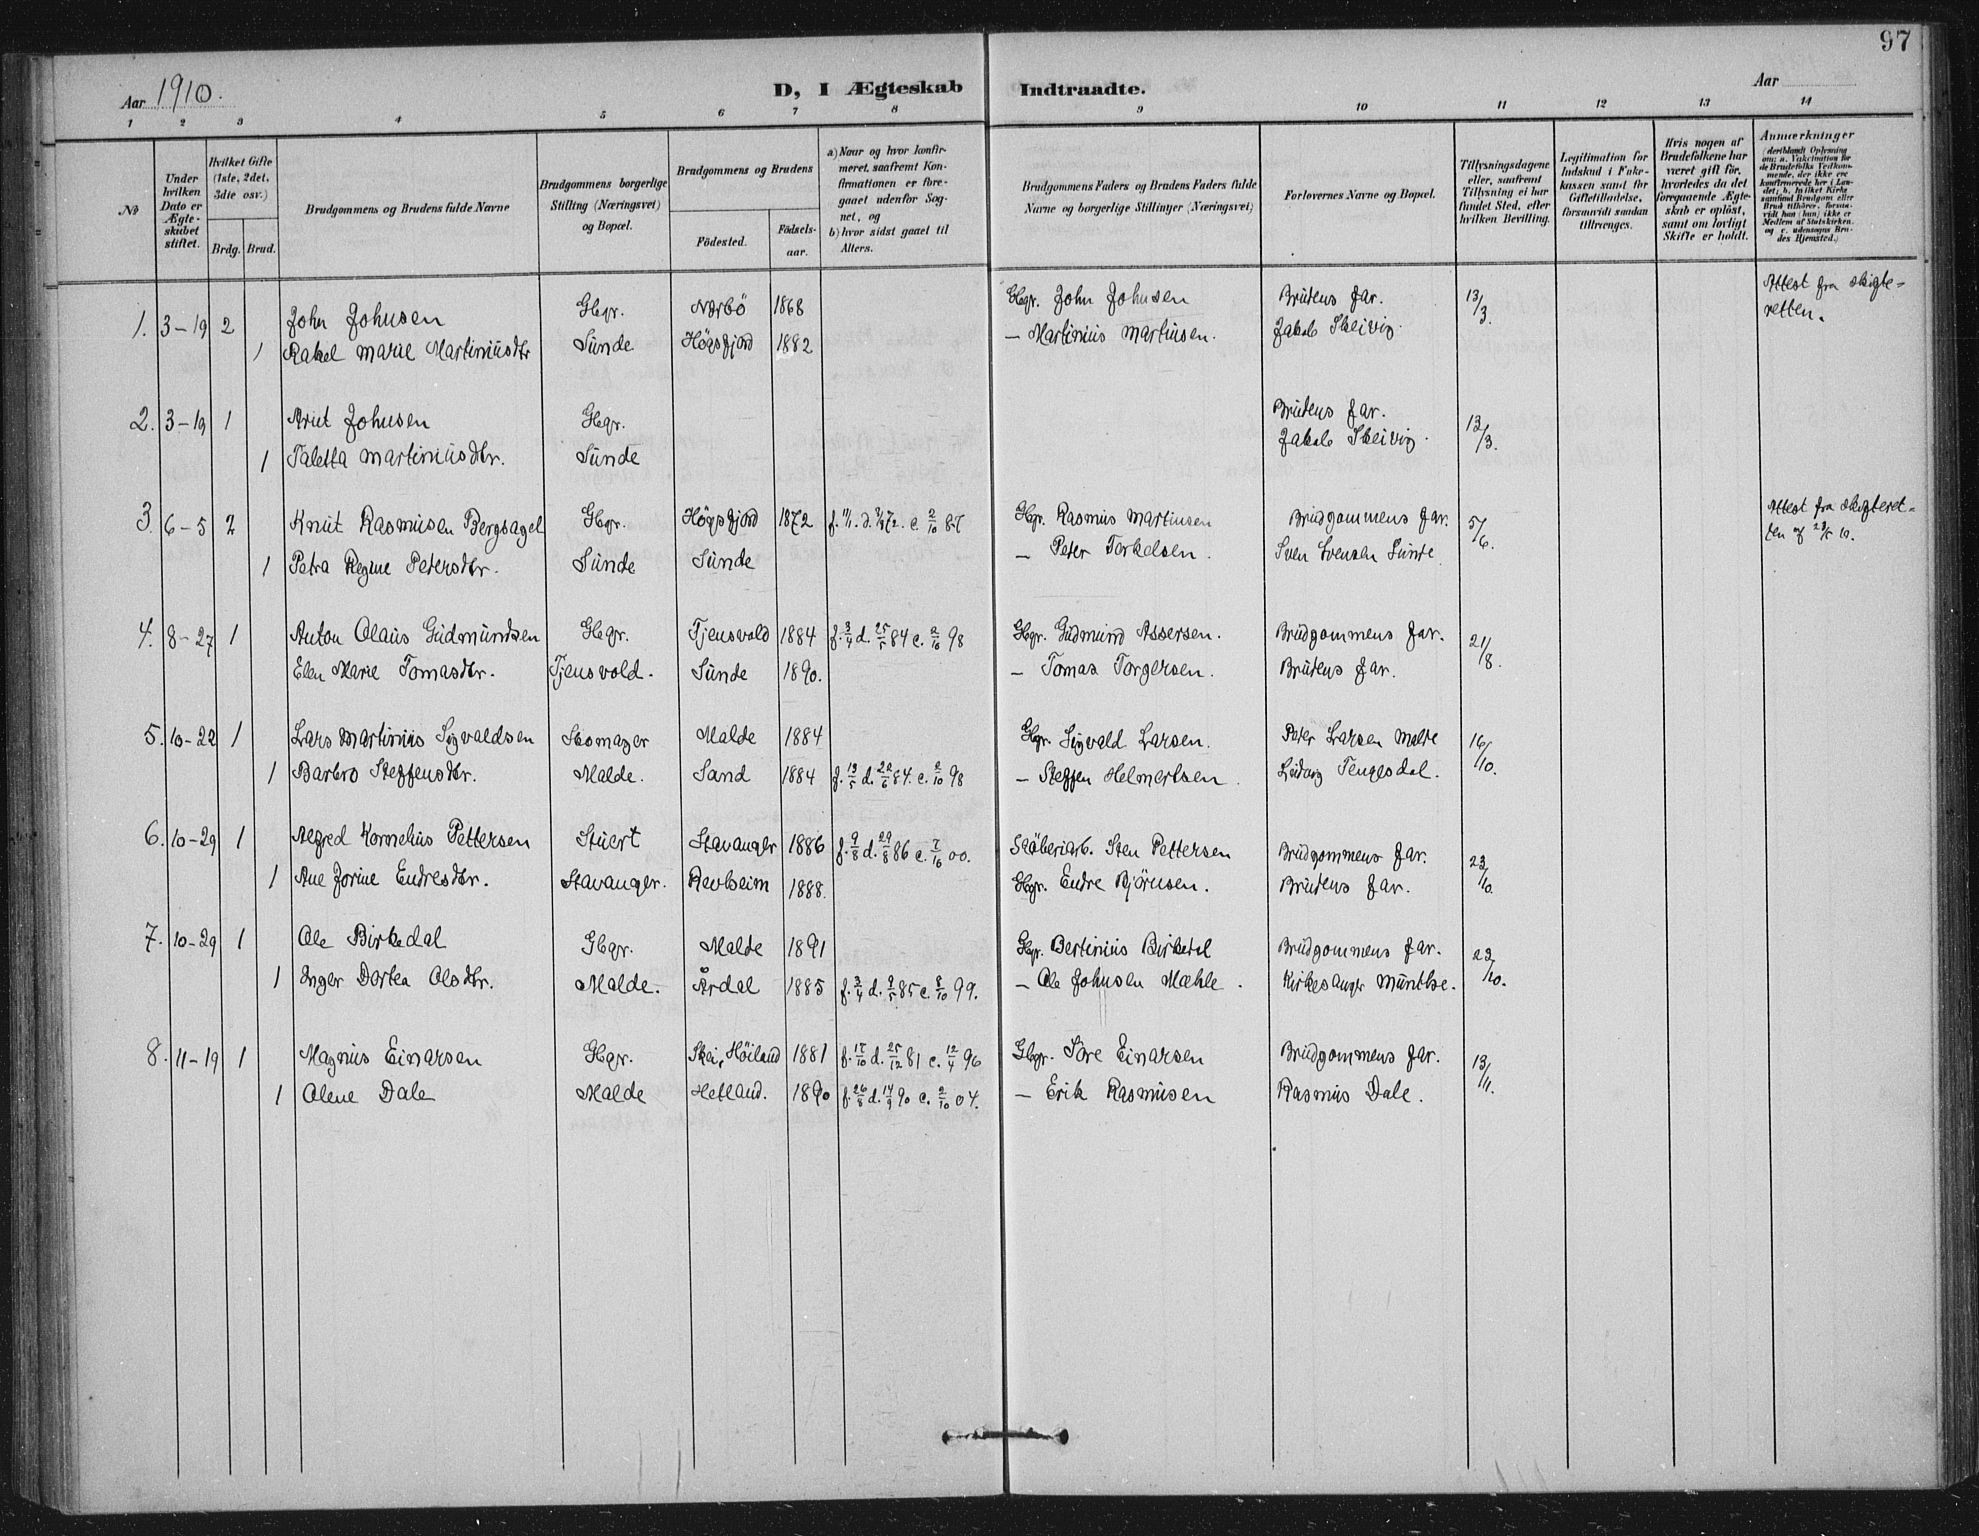 97
Aar 1910.
D, I Ægteskab Indtraadte.
Aar
1 2 3 4 5 6 7 8 9 10 11 12 13 14
No
Under hvilken Dato er Ægteskabet stiftet.
Hvilket Gifte (1ste, 2det, 3die osv.)
Brdg. Brud.
Brudgommens og Brudens fulde Navne
Brudgommens borgerlige Stilling (Næringsvei) og Bopæl.
Brudgommens og Brudens
Fødested. Fødselsaar.
a) Naar og hvor konfirmeret, saafremt Konfirmationen er foregaaet udenfor Sognet, og
b) hvor sidst gaaet til Alters.
Brudgommens Faders og Brudens Faders fulde Navne og borgerlige Stillinger (Næringsvei)
Forlovernes Navne og Bopæl.
Tillysningsdagene eller, saafremt Tillysning ei har fundet Sted, efter hvilken Bevilling.
Legitimation for Indskud i Enkekassen samt for Giftetilladelse, forsaavidt saadan tiltrænges.
Hvis nogen af Brudefolkene har været gift før, hvorledes da det foregaaende Ægteskab er opløst, samt om lovligt Skifte er holdt.
Anmærkninger
(deriblandt Oplysning om: a. Vaksination for de Brudefolks Vedkommende, der ikke ere konfirmerede her i Landet; b. hvilket Kirkesamfund Brudgom eller Brud tilhører, forsaavidt han (hun) ikke er Medlem af Statskirken, og c. udensogns Brudes Hjemsted.)
1. 3-19 2 John Johnsen Gbgr. Nærbö 1868 Gbgr. John Johnsen Brudens far. 13/3. Attest fra skifte-
1 Rakel Marie Martiniusdtr Sunde Högsfjord 1882 — Martinius Martinsen. Jakob Skeivig. retten.
2. 3-19 1 Arnt Johnsen Gbgr. Brudens far. 13/3.
1 Taletta Martiniusdtr. Sunde Jakob Skeivig.
3. 6-5 2 Knut Rasmusen Bergsagel Gbgr. Högsfjord 1872 Gbgr. Rasmus Martinsen Brudgommens far. 5/6. Attest fra skifteret-
1 Petra Regine Petersdtr. Sunde Sunde — Peter Torkelsen. Sven Svensen Sunde
4. 8-27 1 Anton Olaus Gudmundsen Gbgr. Tjensvold 1884 f. 3/4 d. 25/5 84 c. 2/10 98 Gbgr. Gudmund Assersen. Brudgommens far. 21/8.
Elen Marie Tomasdtr. Tjensvold. Sunde 1890. — Tomas Torgersen. Brudens far.
5. 10-22 1 Lars Martinius Sigvaldsen Skomager Malde 1884 Gbgr. Sigvald Larsen. Peter Larsen Malde 16/10.
1 Barbro Steffensdtr. Malde. Sand 1884 f. 13/5 d. 22/6 84. c. 2/10 98 — Steffen Helmertsen. Ludvig Tengesdal.
6. 10-29 1 Alfred Kornelius Pettersen Stuert Stavanger 1886 f. 9/8 d. 29/8 86 c. 7/10 00. Sten Pettersen Brudgommens far. 23/10.
1 Ane Jorine Endresdtr. Stavanger. Revheim 1888. Gbgr. Endre Bjørnsen. Brudens far.
7. 10-29 1 Ole Birkedal Gbgr. Malde 1891 Gbgr. Bertinius Birkedal Brudgommens far. 23/10.
1 Inger Dortea Olsdtr. Malde. Årdal 1885 f. 3/4 d. 9/5 85 c. 8/10 99. — Ole Johnsen Mæhle. Kirkesanger Munthe.
8. 11-19 1 Magnus Einarsen Gbgr. Skei, Höiland 1881 f. 17/10 d. 25/12 81 c. 12/4 96 Gbgr. Sore Einarsen Brudgommens far. 13/11.
1 Olene Dale Malde Hetland. 1890 f. 26/8 d. 14/9 90 c. 2/10 04. — Erik Rasmusen Rasmus Dale.